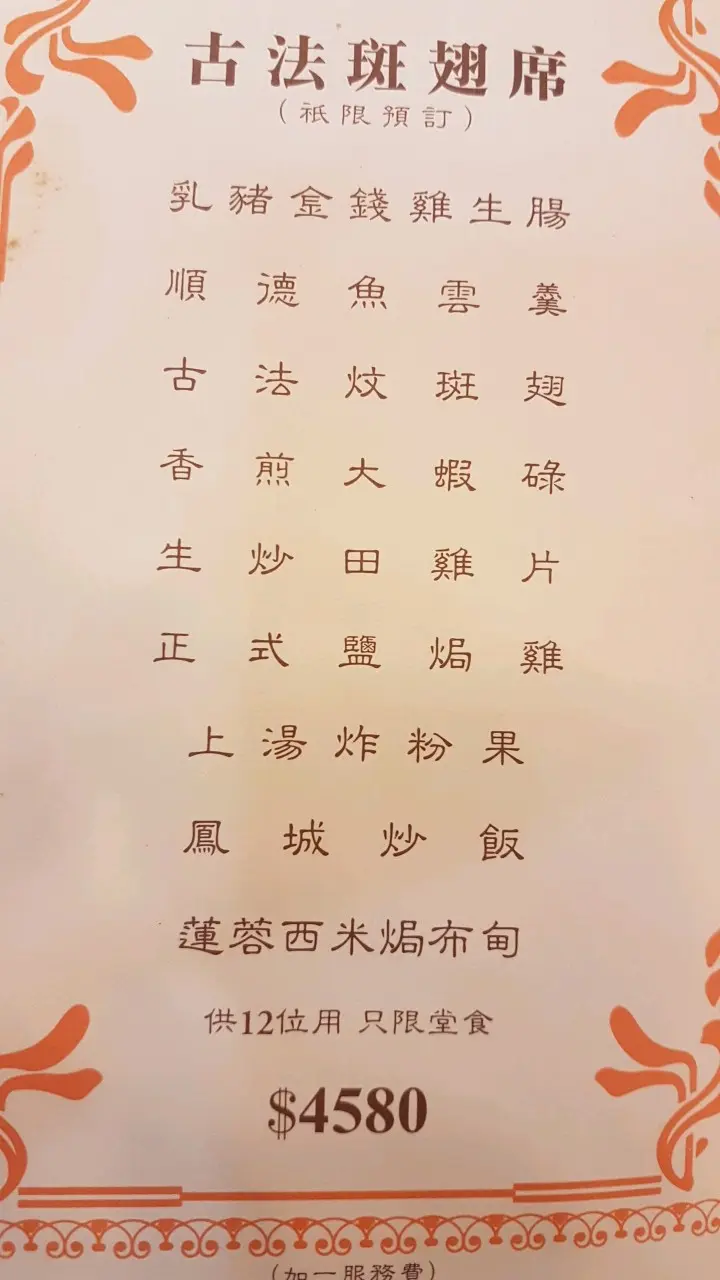 古法斑翅席
（祇限預訂）
乳豬金錢雞生腸
順德魚雲羹
古法炆斑翅
香煎大蝦碌
生炒田雞片
正式鹽焗雞
上湯炸粉果
鳳城炒飯
蓮蓉西米焗布甸
供12位用 只限堂食
$4580
（加一服務費）